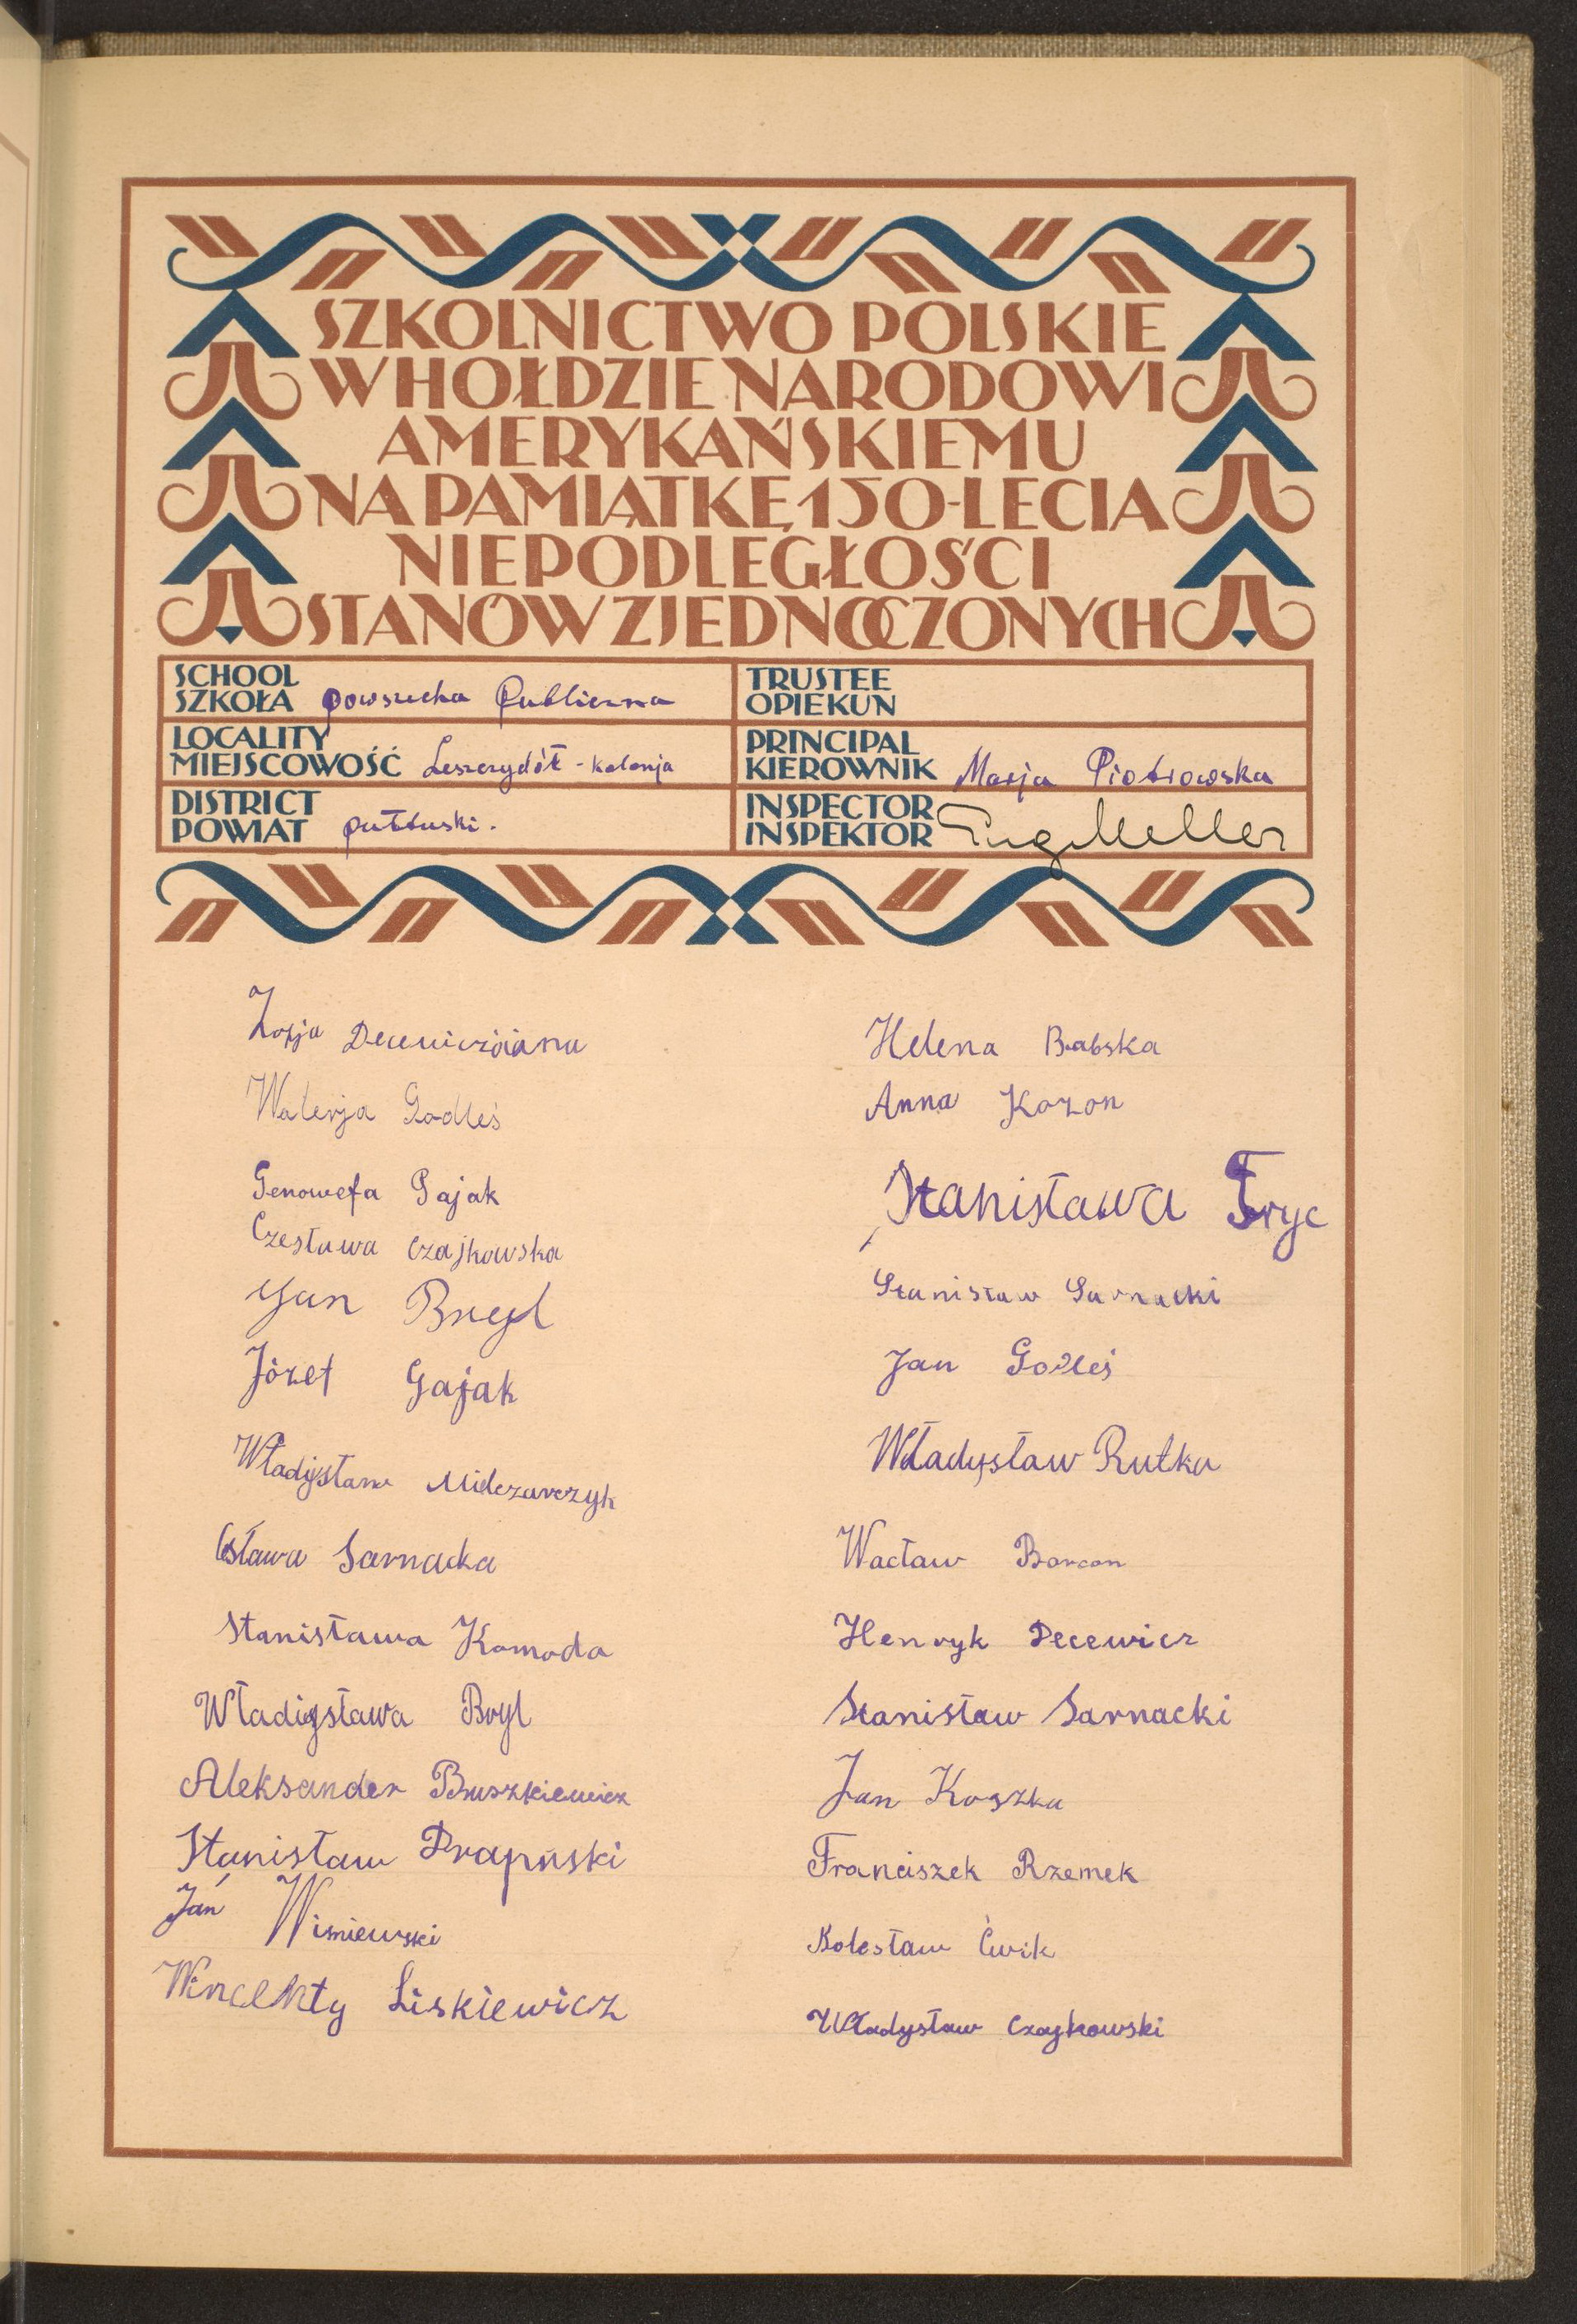 SZKOLNICTWO POLSKIE
W HOŁDZIE NARODOWI
AMERYKAŃSKIEMU
NA PAMIĄTKĘ 150-LECIA
NIEPODLEGŁOŚCI
STANÓW ZJEDNOCZONYCH
SCHOOL
SZKOŁA powszecha Publiczna
LOCALITY
MIEJSCOWOŚĆ Leszczydół - kolonja
DISTRICT
POWIAT pułtuski.
TRUSTEE
OPIEKUN
PRINCIPAL
KIEROWNIK Marja Piotrowska
INSPECTOR
INSPEKTOR Eug Meller
Zofja
Walerja Godleś
Genowefa Gajak
Czesława Czajkowska
Jan Bryl
Józef Gajak
Władysław
Sarnacka
Stanisława Komoda
Władysława Bryl
Aleksander Bruszkiewicz
Stanisław
Jan Wiśniewski
Wincenty Liskiewicz
Helena Babska
Anna Kozon
Stanisława Fryc
Stanisław Sarnacki
Jan Godleś
Władysław Rutka
Wacław
Henryk Decewicz
Stanisław Sarnacki
Jan Koszka
Franciszek Rzemek
Bolesław Ćwik
Władysław Czajkowski